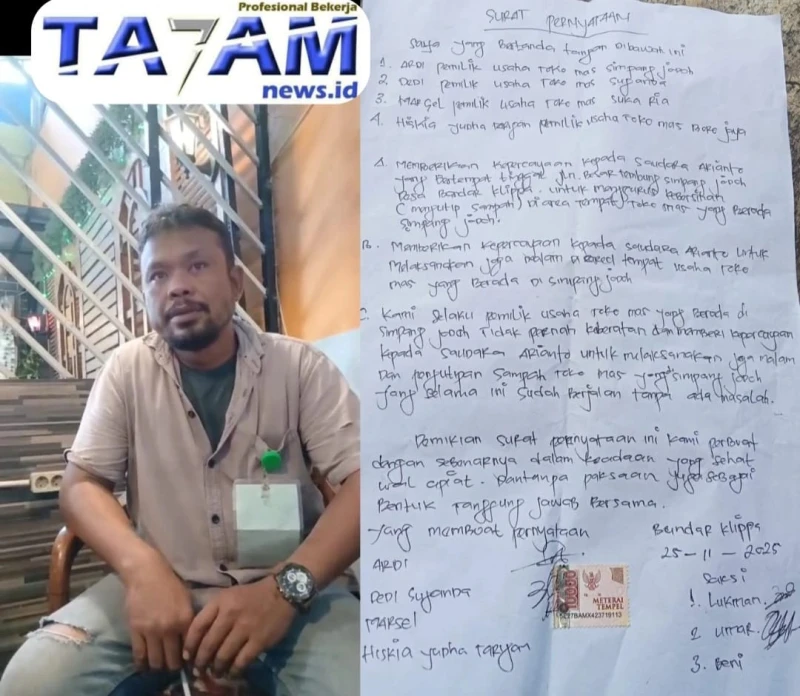 Profesional Bekerja
TA7AM
news.id
SURAT PERNYATAAN
Saya yang Bertanda tangan Dibawah ini
1. ARDI pemilik usaha Toko mas simpang jodoh
2. DEDI pemilik usaha Toko mas Sujanda
3. MARSEL pemilik usaha Toko mas suka Ria
4. Hiskia yupha pemilik usaha Toko mas jaya
A. MEMBERIKAN kepercayaan kepada saudara Arianto
yang Bertempat tinggal jln. Besar tembung simpang jodoh
Desa Bandar klippa. untuk mengurus kebersihan
(mengutip sampah) Di area tempat Toko mas yang Berada
Simpang jodoh.
B. Memberikan kepercayaan kepada saudara Arianto untuk
melaksanakan jaga malam tempat usaha Toko
mas yang Berada Di simpang jodoh
Kami Selaku pemilik usaha Toko mas yang Berada di
simpang jodoh Tidak pernah keberatan dan memberi kepercayaan
kepada saudara Arianto untuk melaksanakan jaga malam
Dan pengutipan Sampah Toko mas yang simpang jodoh
yang Selama ini Sudah Berjalan tanpa ada masalah.
Demikian surat pernyataan ini kami perbuat
dengan sebenarnya dalam keadaan yang sehat
wal apiat. Dantanpa paksaan juga sebagai
Bentuk Tanggung jawab Bersama.
yang membuat pernyataan
Bandar Klippa
25-11-2025
ARDI
DEDI Sujanda
MARSEL
Hiskia yupha Tarigan
10000
METERAI
TEMPEL
Saksi
1. Lukman
2 umar
3. Beni